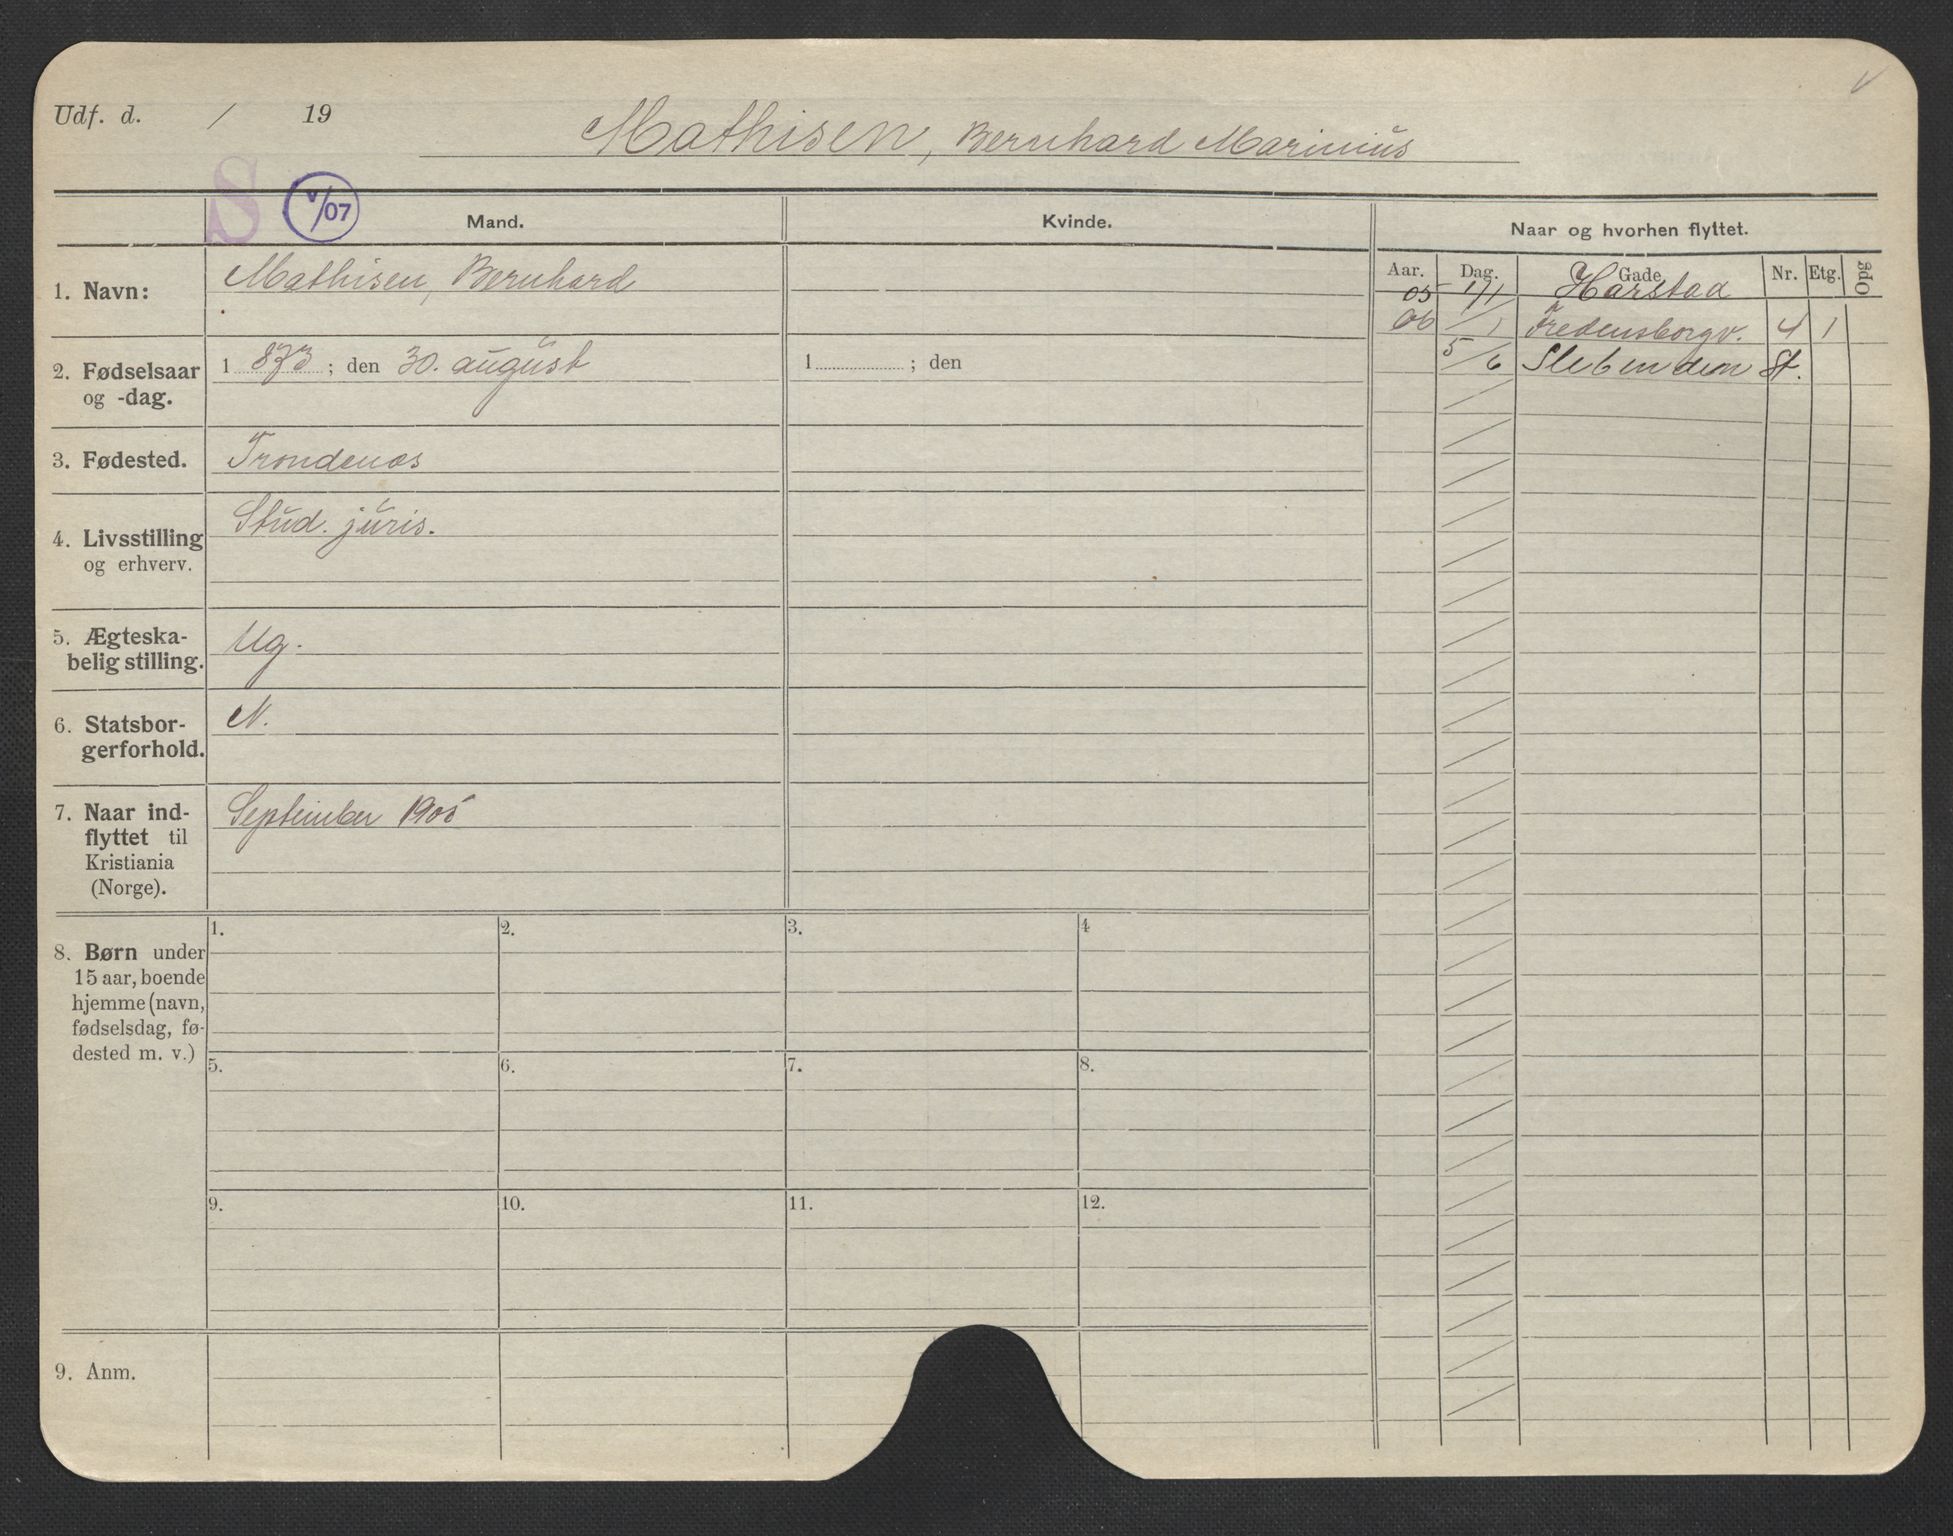 Udf. d. / 19
Mathisen, Bernhard Marinius
S V/07
Mand. Kvinde. Naar og hvorhen flyttet.
Aar. Dag. Gade Nr. Etg. Opg
1. Navn: Mathisen, Bernhard
05 1/1 Harstad
06 /1 Fredensborgv. 4 1
5/6 Slebenden St.
2. Fødselsaar 1873; den 30. august 1 ; den
og -dag.
3. Fødested. Trondenæs
4. Livsstilling Stud. juris.
og erhverv.
5. Ægteska- Ug.
belig stilling.
6. Statsbor- N.
gerforhold.
7. Naar ind- September 1905
flyttet til
Kristiania
(Norge).
8. Børn under
15 aar, boende
hjemme (navn,
fødselsdag, fø-
dested m. v.)
1. 2. 3. 4
5. 6. 7. 8.
9. 10. 11. 12.
9. Anm.